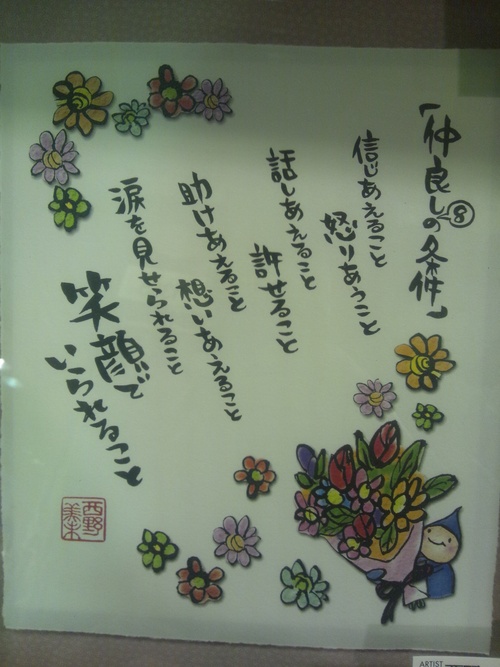 「仲良しの⑧条件」
信じあえること
怒りあうこと
話しあえること
許せること
助けあえること
想いあえること
涙を見せられること
笑顔で
いられること
西野
美未
ARTIST